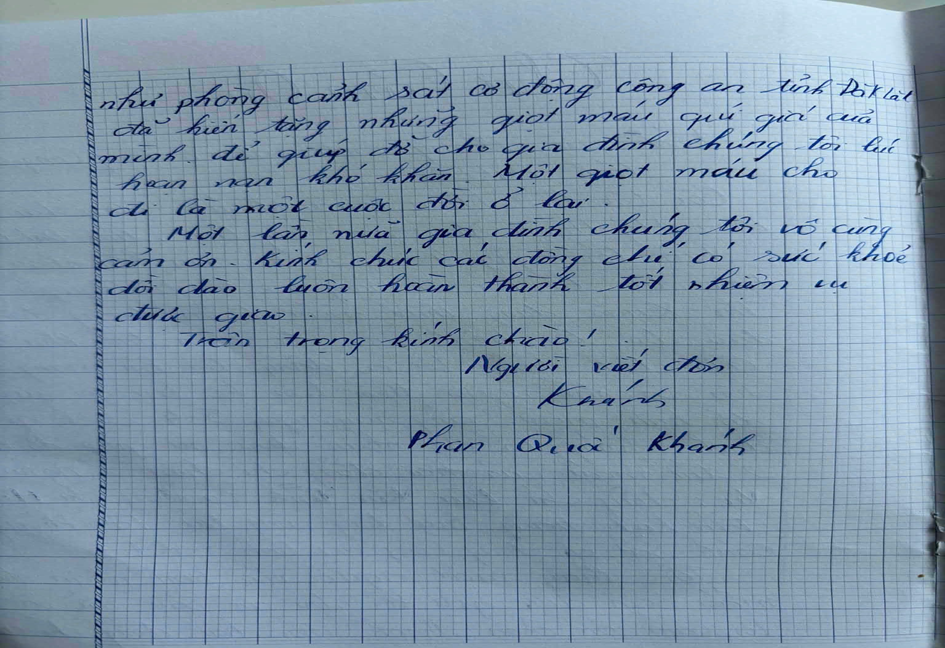 như phòng cảnh sát cơ động công an tỉnh Đăk Lăk
đã hiến tặng những giọt máu quí giá của
mình. để giúp đỡ cho gia đình chúng tôi lúc
hoạn nạn khó khăn. Một giọt máu cho
đi là một cuộc đời ở lại.
Một lần nữa gia đình chúng tôi vô cùng
cảm ơn. Kính chúc các đồng chí có sức khoẻ
dồi dào luôn hoàn thành tốt nhiệm vụ
được giao.
Trân trọng kính chào!
Người viết đơn
Khánh
Phan Quốc Khánh